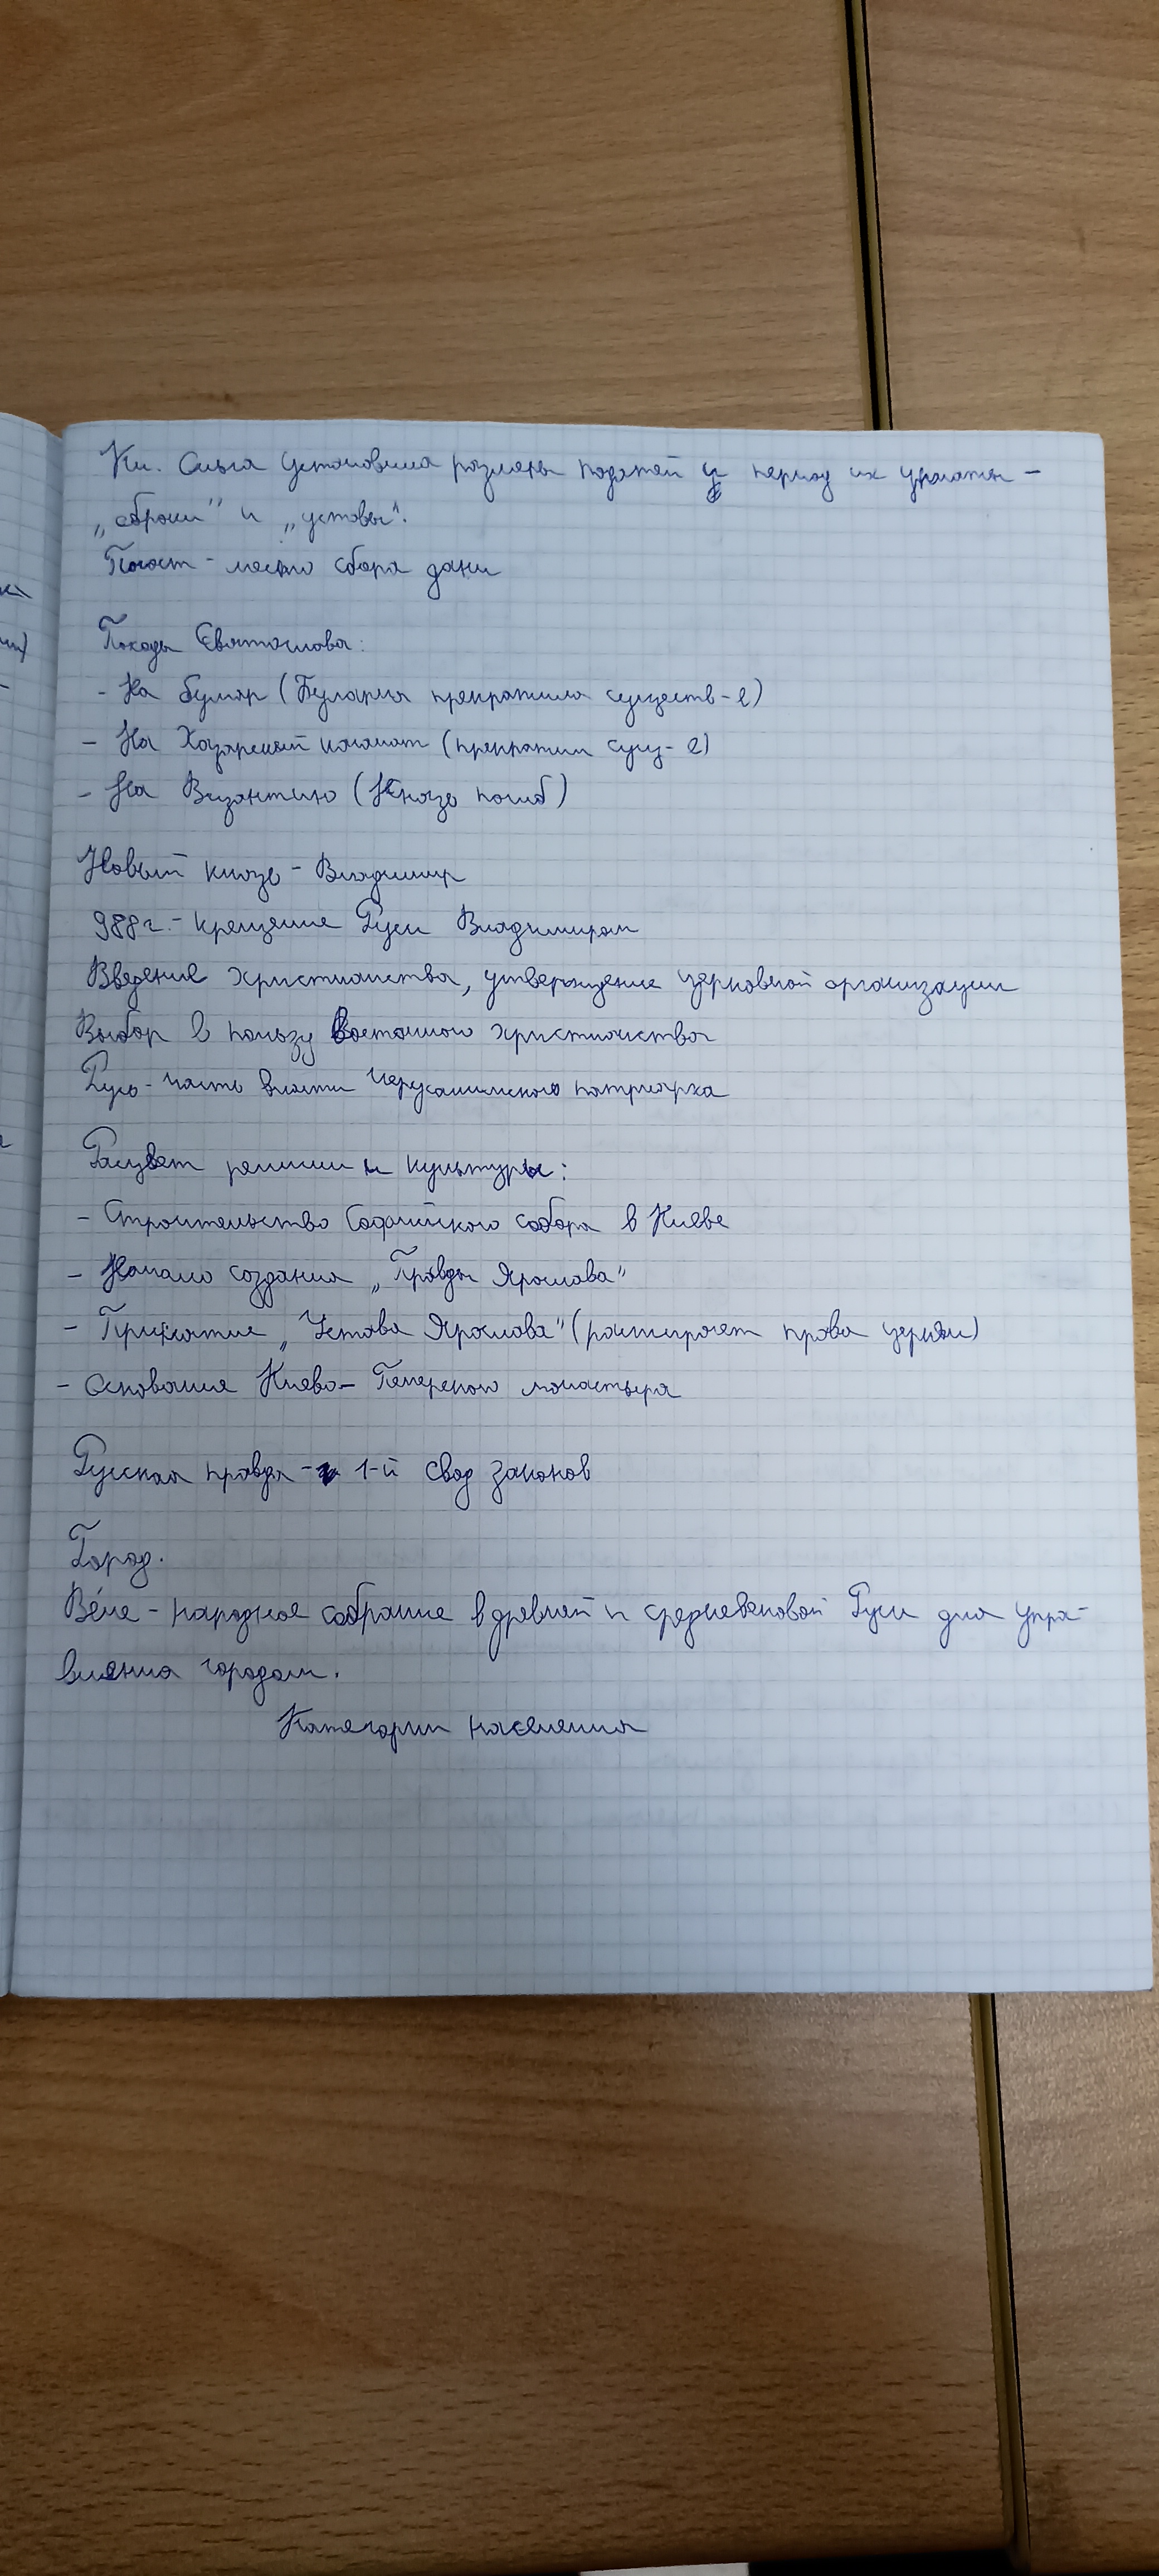 Кн. Ольга установила размеры податей и период их уплаты –
„оброки" и „уставы".
Погост - место сбора дани
Походы Святослава:
- На булгар (Булгария прекратила существ-е)
- На Хазарский каганат (прекратил сущ-е)
- На Византию (Князь погиб)
Новый князь - Владимир
988г. - крещение Руси Владимиром
Введение христианства, утверждение церковной организации
Выбор в пользу Восточного христианства
Русь - часть власти Иерусалимского патриарха
Расцвет религии и культуры:
- Строительство Софийского собора в Киеве
- Начало создания „Правды Ярослава"
- Принятие „Устава Ярослава" (расширяет права церкви)
- Основание Киево-Печерского монастыря
Русская правда - 1-й свод законов
Город.
Ве́че - народное собрание в древней и средневековой Руси для упра-
вления городом.
Категории населения